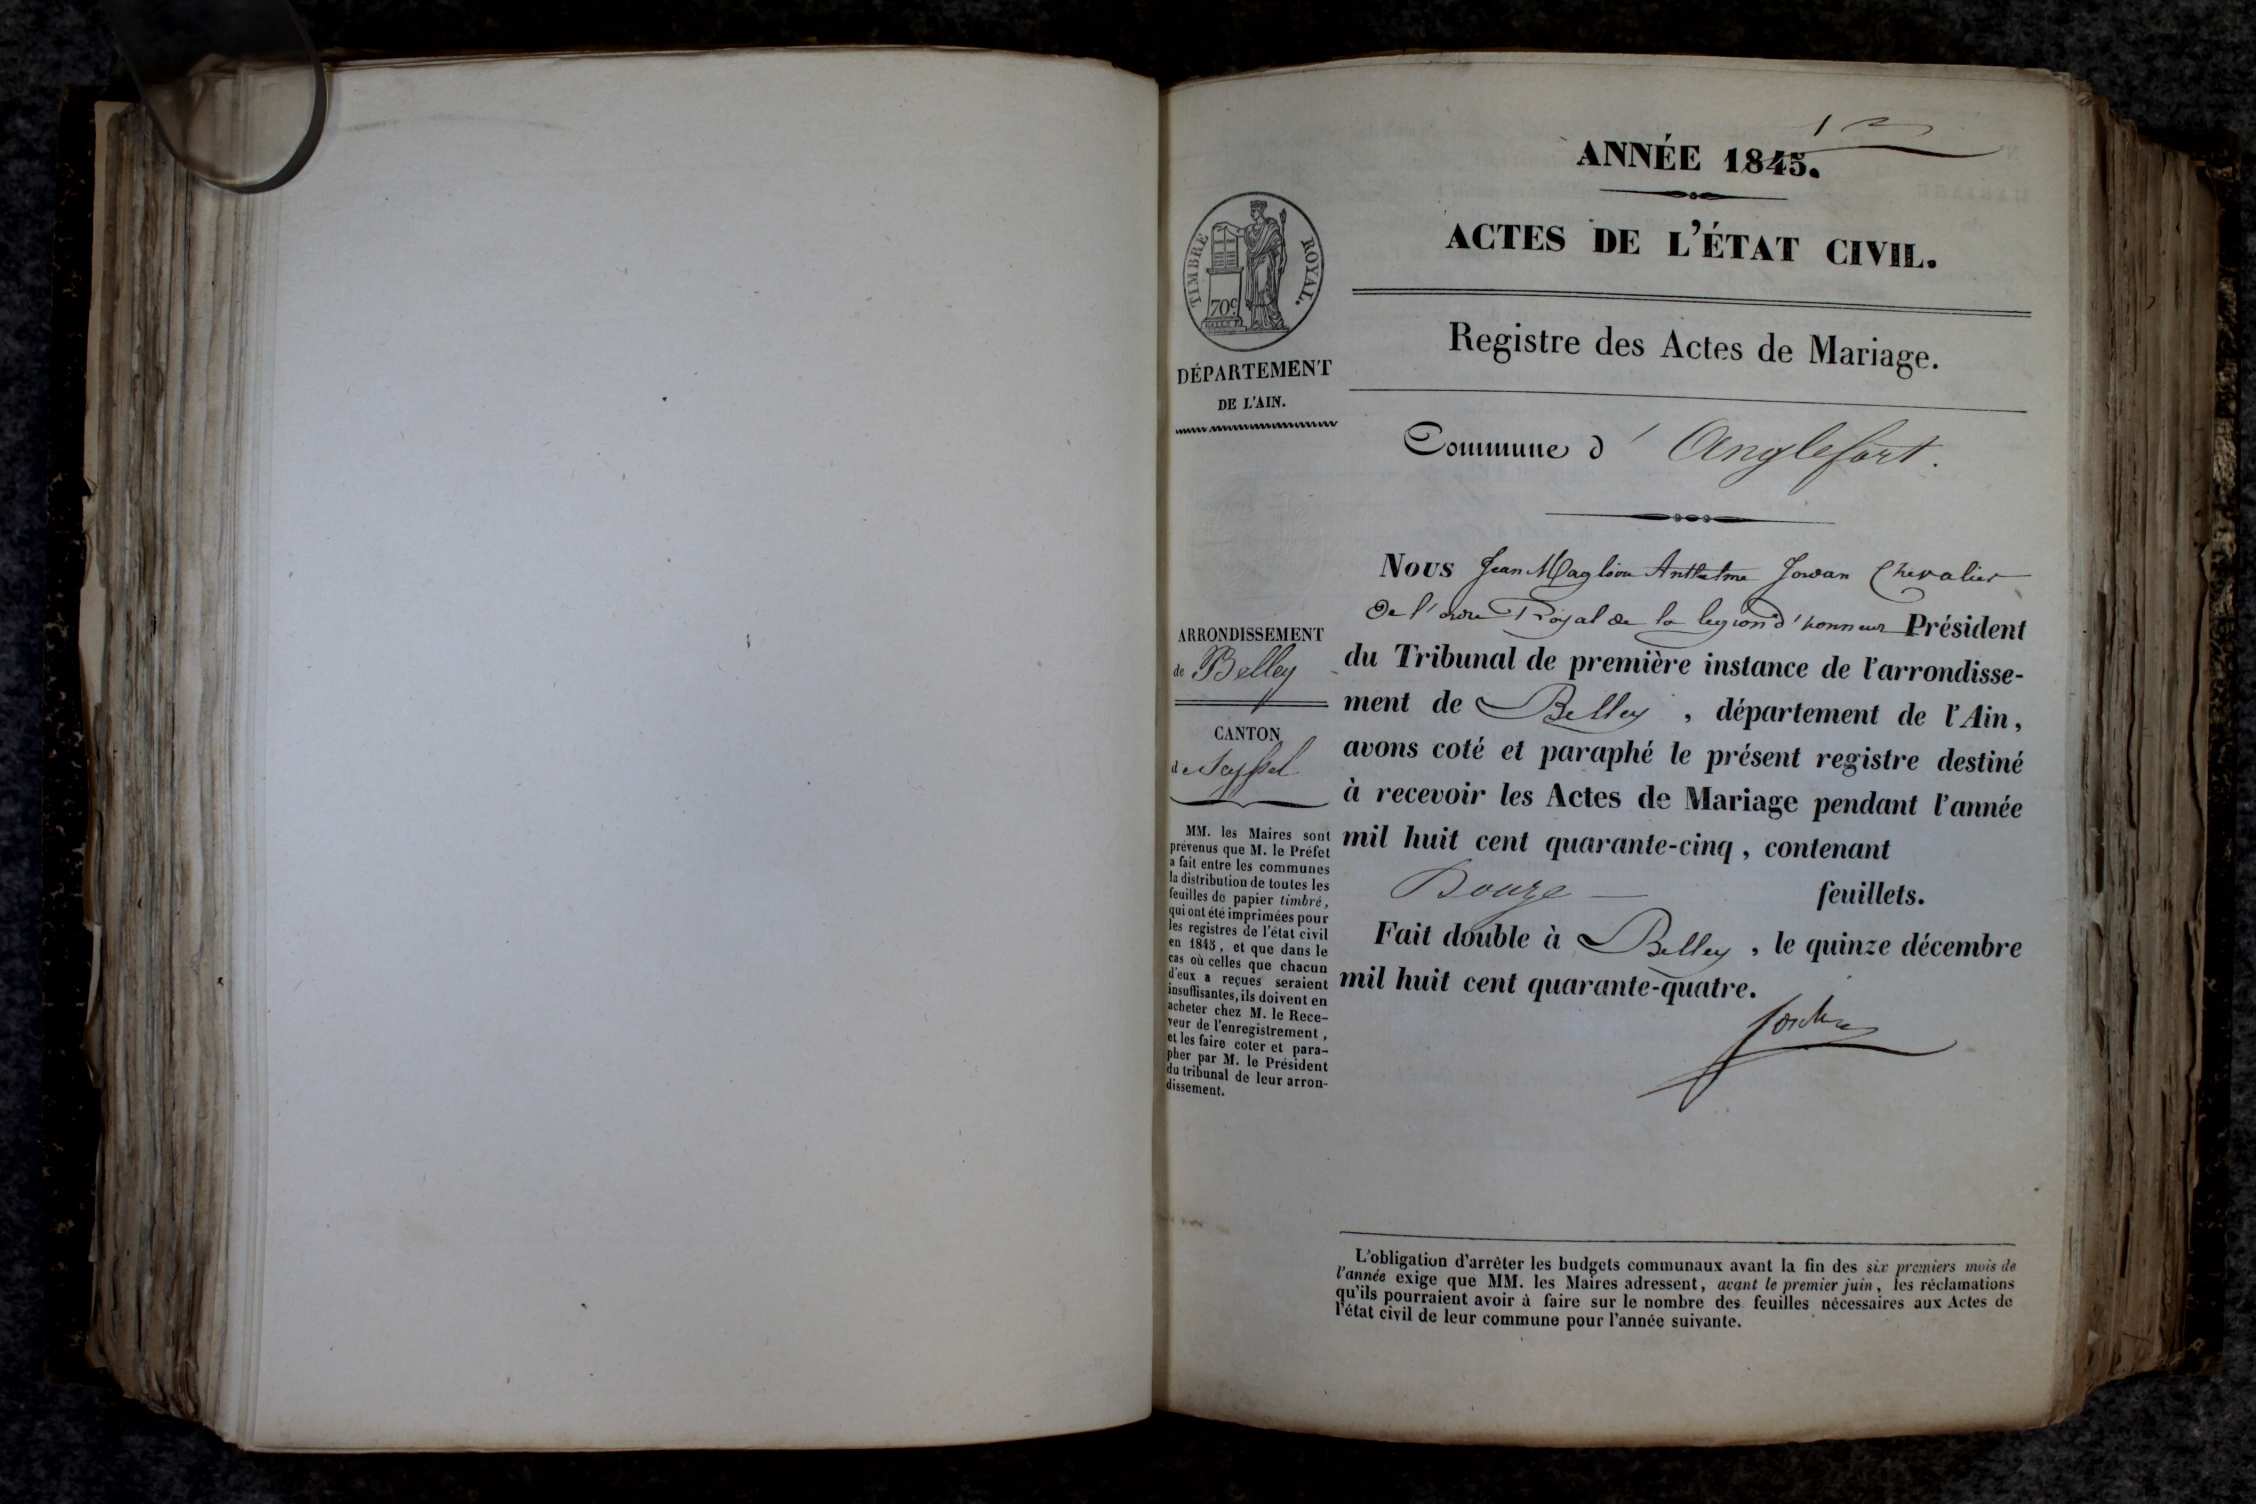 ANNÉE 1845.
ACTES DE L'ÉTAT CIVIL.
TIMBRE ROYAL.
70c
DÉPARTEMENT
DE L'AIN.
Registre des Actes de Mariage.
Commune d' Anglefort.
ARRONDISSEMENT
de Belley
CANTON
de Seyssel
MM. les Maires sont
prévenus que M. le Préfet
a fait entre les communes
la distribution de toutes les
feuilles de papier timbré,
qui ont été imprimées pour
les registres de l'état civil
en 1845, et que dans le
cas où celles que chacun
d'eux a reçues seraient
insuffisantes, ils doivent en
acheter chez M. le Rece-
veur de l'enregistrement,
et les faire coter et para-
pher par M. le Président
du tribunal de leur arron-
dissement.
Nous Jean Anthelme Chevalier
de l'ordre Royal de la legion d'honneur Président
du Tribunal de première instance de l'arrondisse-
ment de Belley, département de l'Ain,
avons coté et paraphé le présent registre destiné
à recevoir les Actes de Mariage pendant l'année
mil huit cent quarante-cinq, contenant
Douze feuillets.
Fait double à Belley, le quinze décembre
mil huit cent quarante-quatre.
L'obligation d'arrêter les budgets communaux avant la fin des six premiers mois de
l'année exige que MM. les Maires adressent, avant le premier juin, les réclamations
qu'ils pourraient avoir à faire sur le nombre des feuilles nécessaires aux Actes de
l'état civil de leur commune pour l'année suivante.